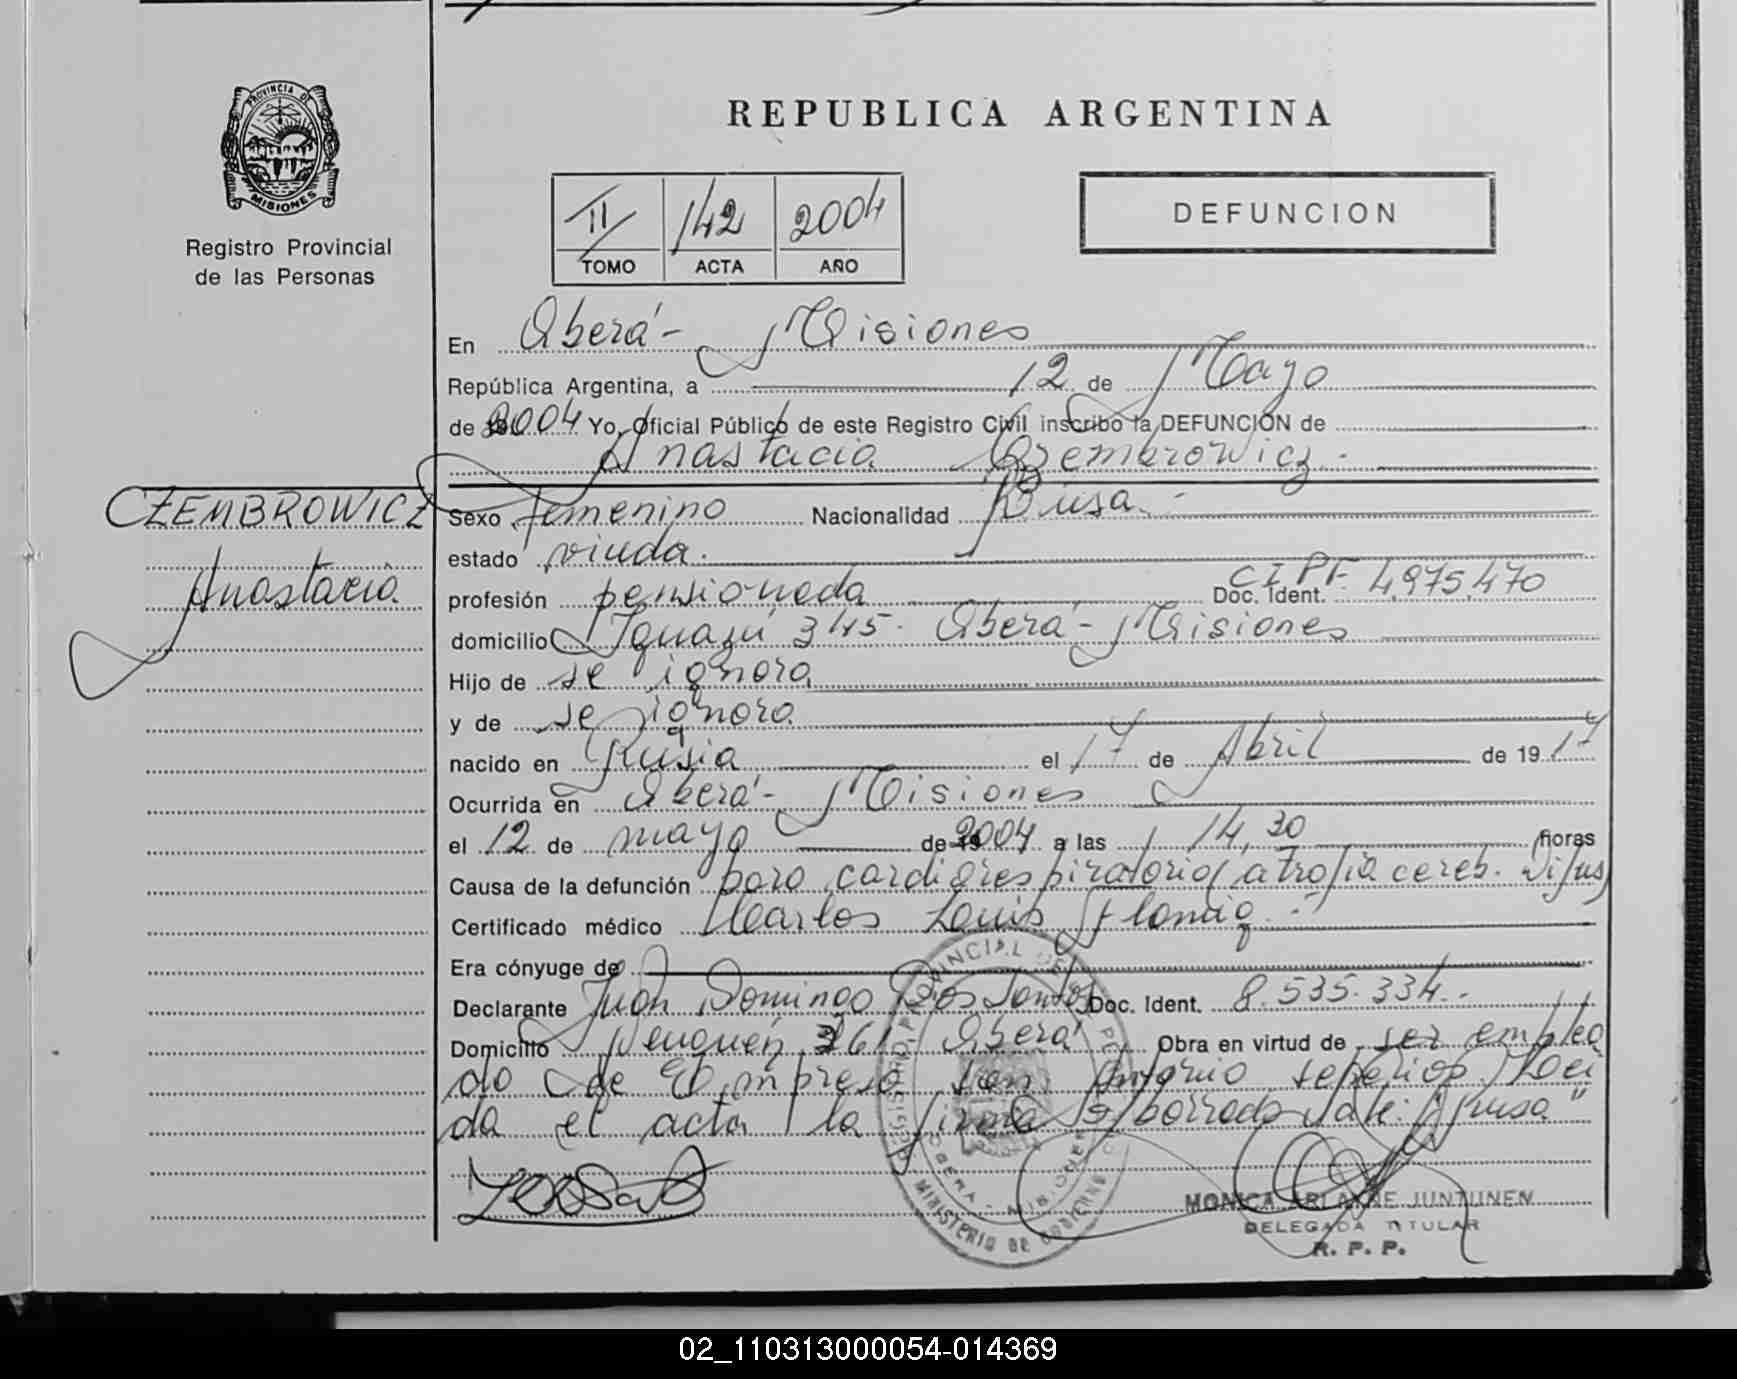 PROVINCIA DE
MISIONES
Registro Provincial
de las Personas
REPUBLICA ARGENTINA
II 142 2004
TOMO ACTA AÑO
DEFUNCION
En Oberá - Misiones
República Argentina, a 12 de Mayo
de 2004 Yo, Oficial Público de este Registro Civil inscribo la DEFUNCIÓN de
Anastacia Czembrowicz.-
CZEMBROWICZ
Anastacia
Sexo femenino Nacionalidad Rusa -
estado viuda.
profesión pensionada Doc. Ident. CIPF 4.975.470
domicilio Iguazú 345. Oberá - Misiones
Hijo de se ignora
y de se ignora
nacido en Rusia el 17 de Abril de 1917
Ocurrida en Oberá - Misiones
el 12 de mayo de 2004 a las 14,30 horas
Causa de la defunción paro cardiorespiratorio, atrofia cereb. Difus
Certificado médico Carlos Louis
Era cónyuge de
Declarante Juan Domingo Dos Santos Doc. Ident. 8.535.334.-
Domicilio Neuquén 361 Oberá Obra en virtud de ser emplea
do de Empresa San Antonio sepelios. Leí
da el acta la firma S/borrado Vale: "Rusa"
REGISTRO PROVINCIAL DE LAS PERSONAS
OBERA - MISIONES
MINISTERIO DE GOBIERNO
MONICA ARIADNE JUNTUNEN
DELEGADA TITULAR
R. P. P.
02_110313000054-014369